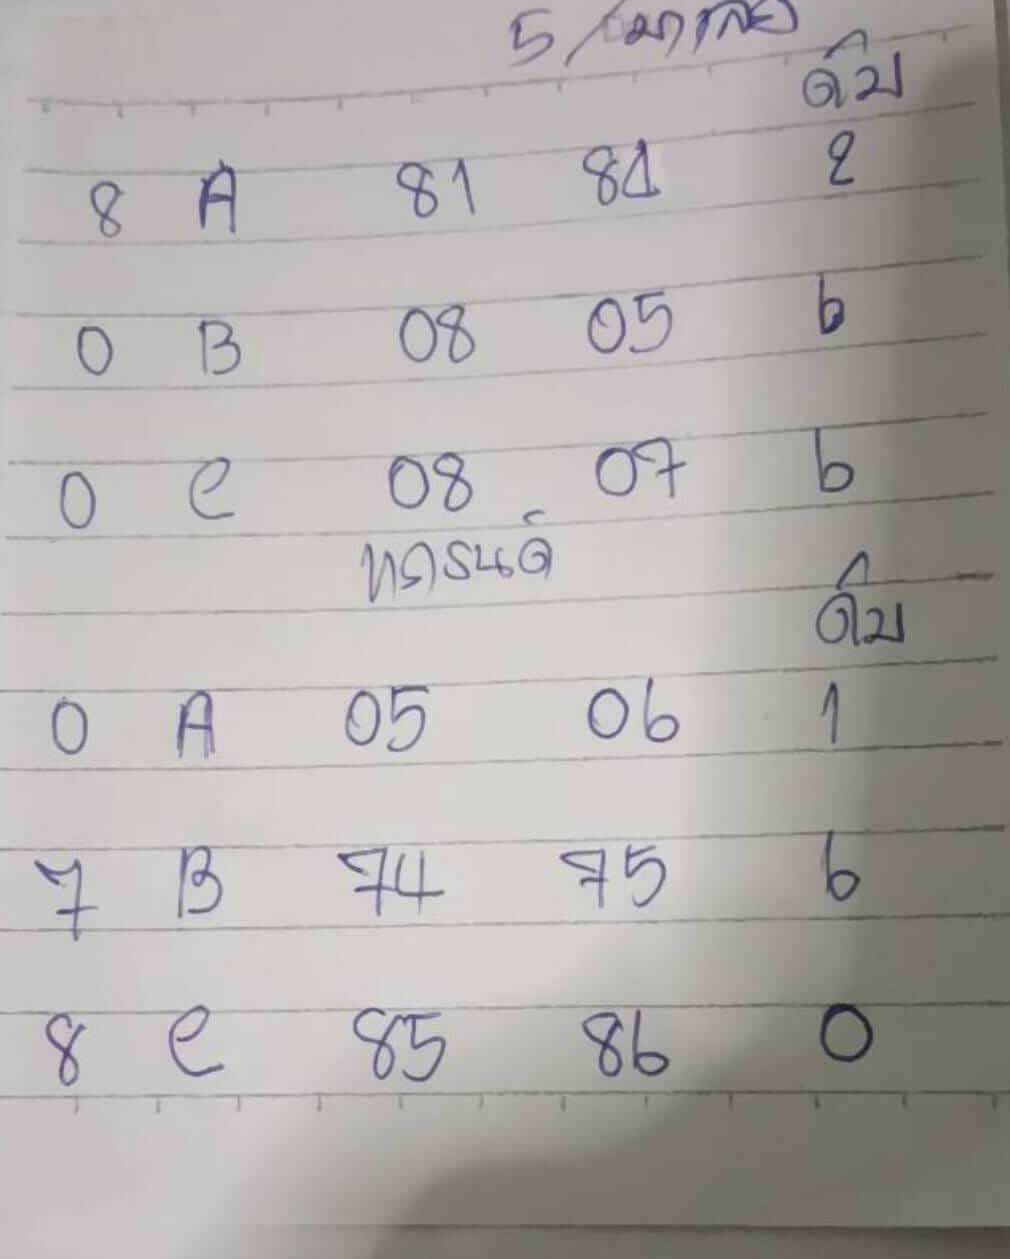 5/มาเลย์
ดิบ
8 A 81 84 2
0 B 08 05 6
0 C 08 07 6
ดิบ
0 A 05 06 1
7 B 74 75 6
8 C 85 86 0